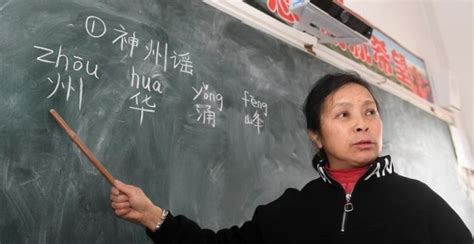 ①神州谣
zhōu huá yǒng fēng
州 华 涌 峰